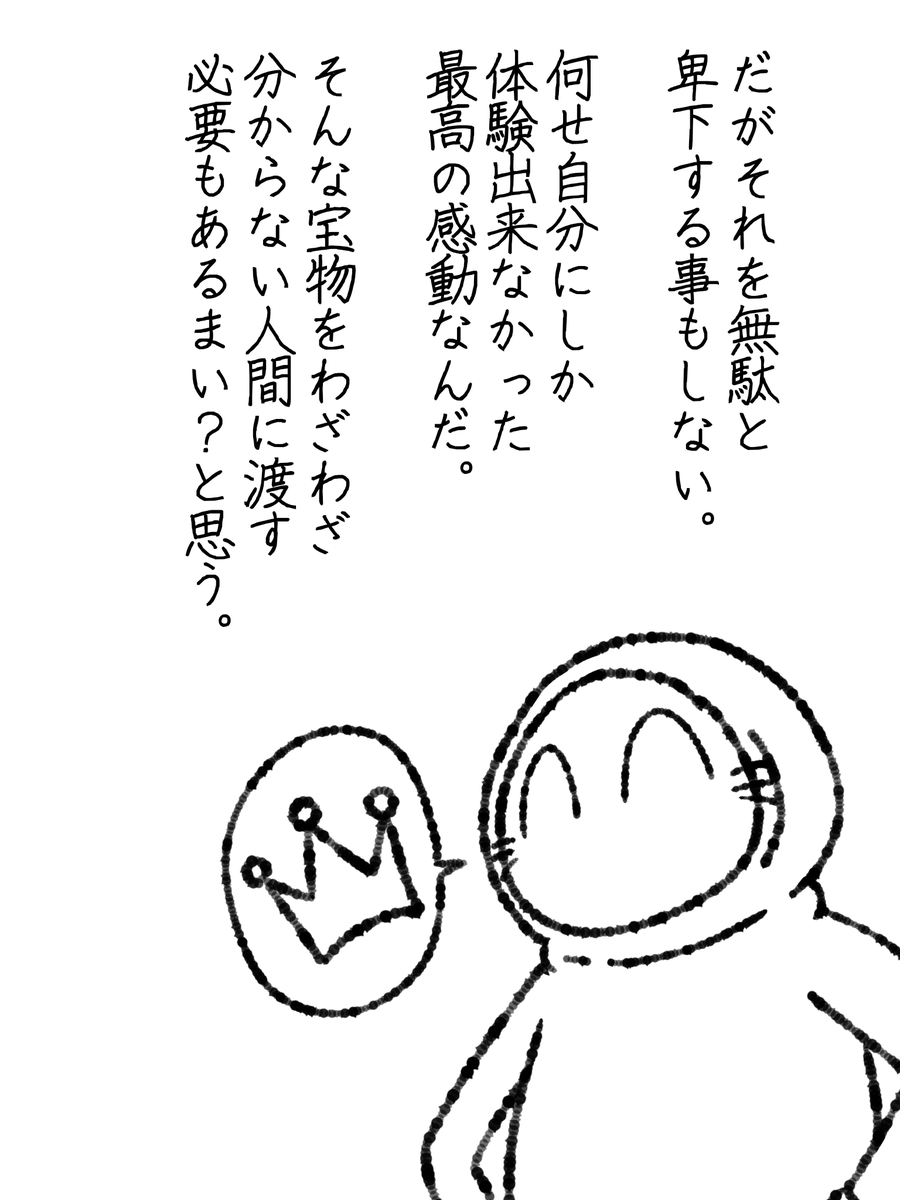 だがそれを無駄と
卑下する事もしない。
何せ自分にしか
体験出来なかった
最高の感動なんだ。
そんな宝物をわざわざ
分からない人間に渡す
必要もあるまい？と思う。